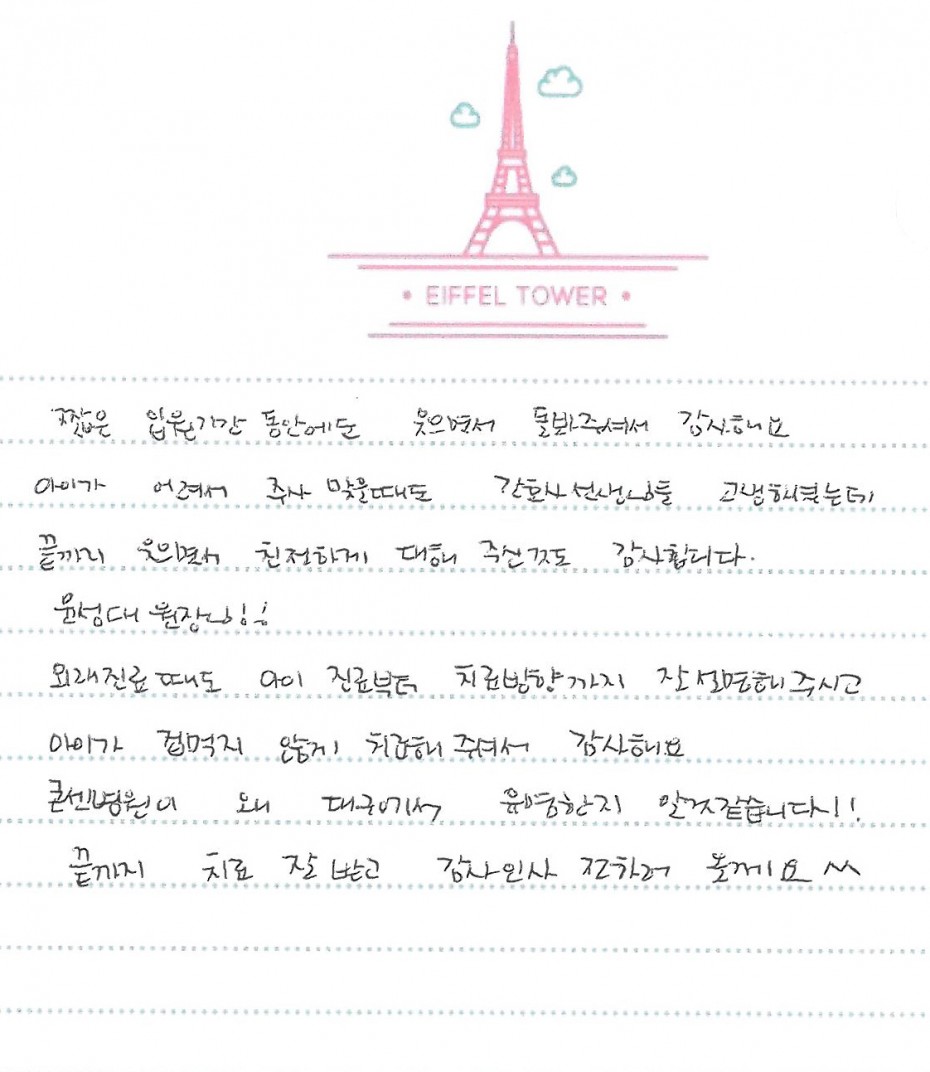 • EIFFEL TOWER •
짧은 입원기간 동안에도 웃으면서 돌봐주셔서 감사해요
아이가 어려서 주사 맞을때도 간호사선생님들 고생하셨는데
끝까지 웃으면서 친절하게 대해 주신것도 감사합니다.
윤성대 원장님!!
외래진료때도 아이 진료부터 치료방향까지 잘 설명해주시고
아이가 겁먹지 않게 치료해 주셔서 감사해요
곤센병원이 왜 대구에서 유명한지 알것같습니다!!
끝까지 치료 잘 받고 감사인사 전하러 올께요 ^^